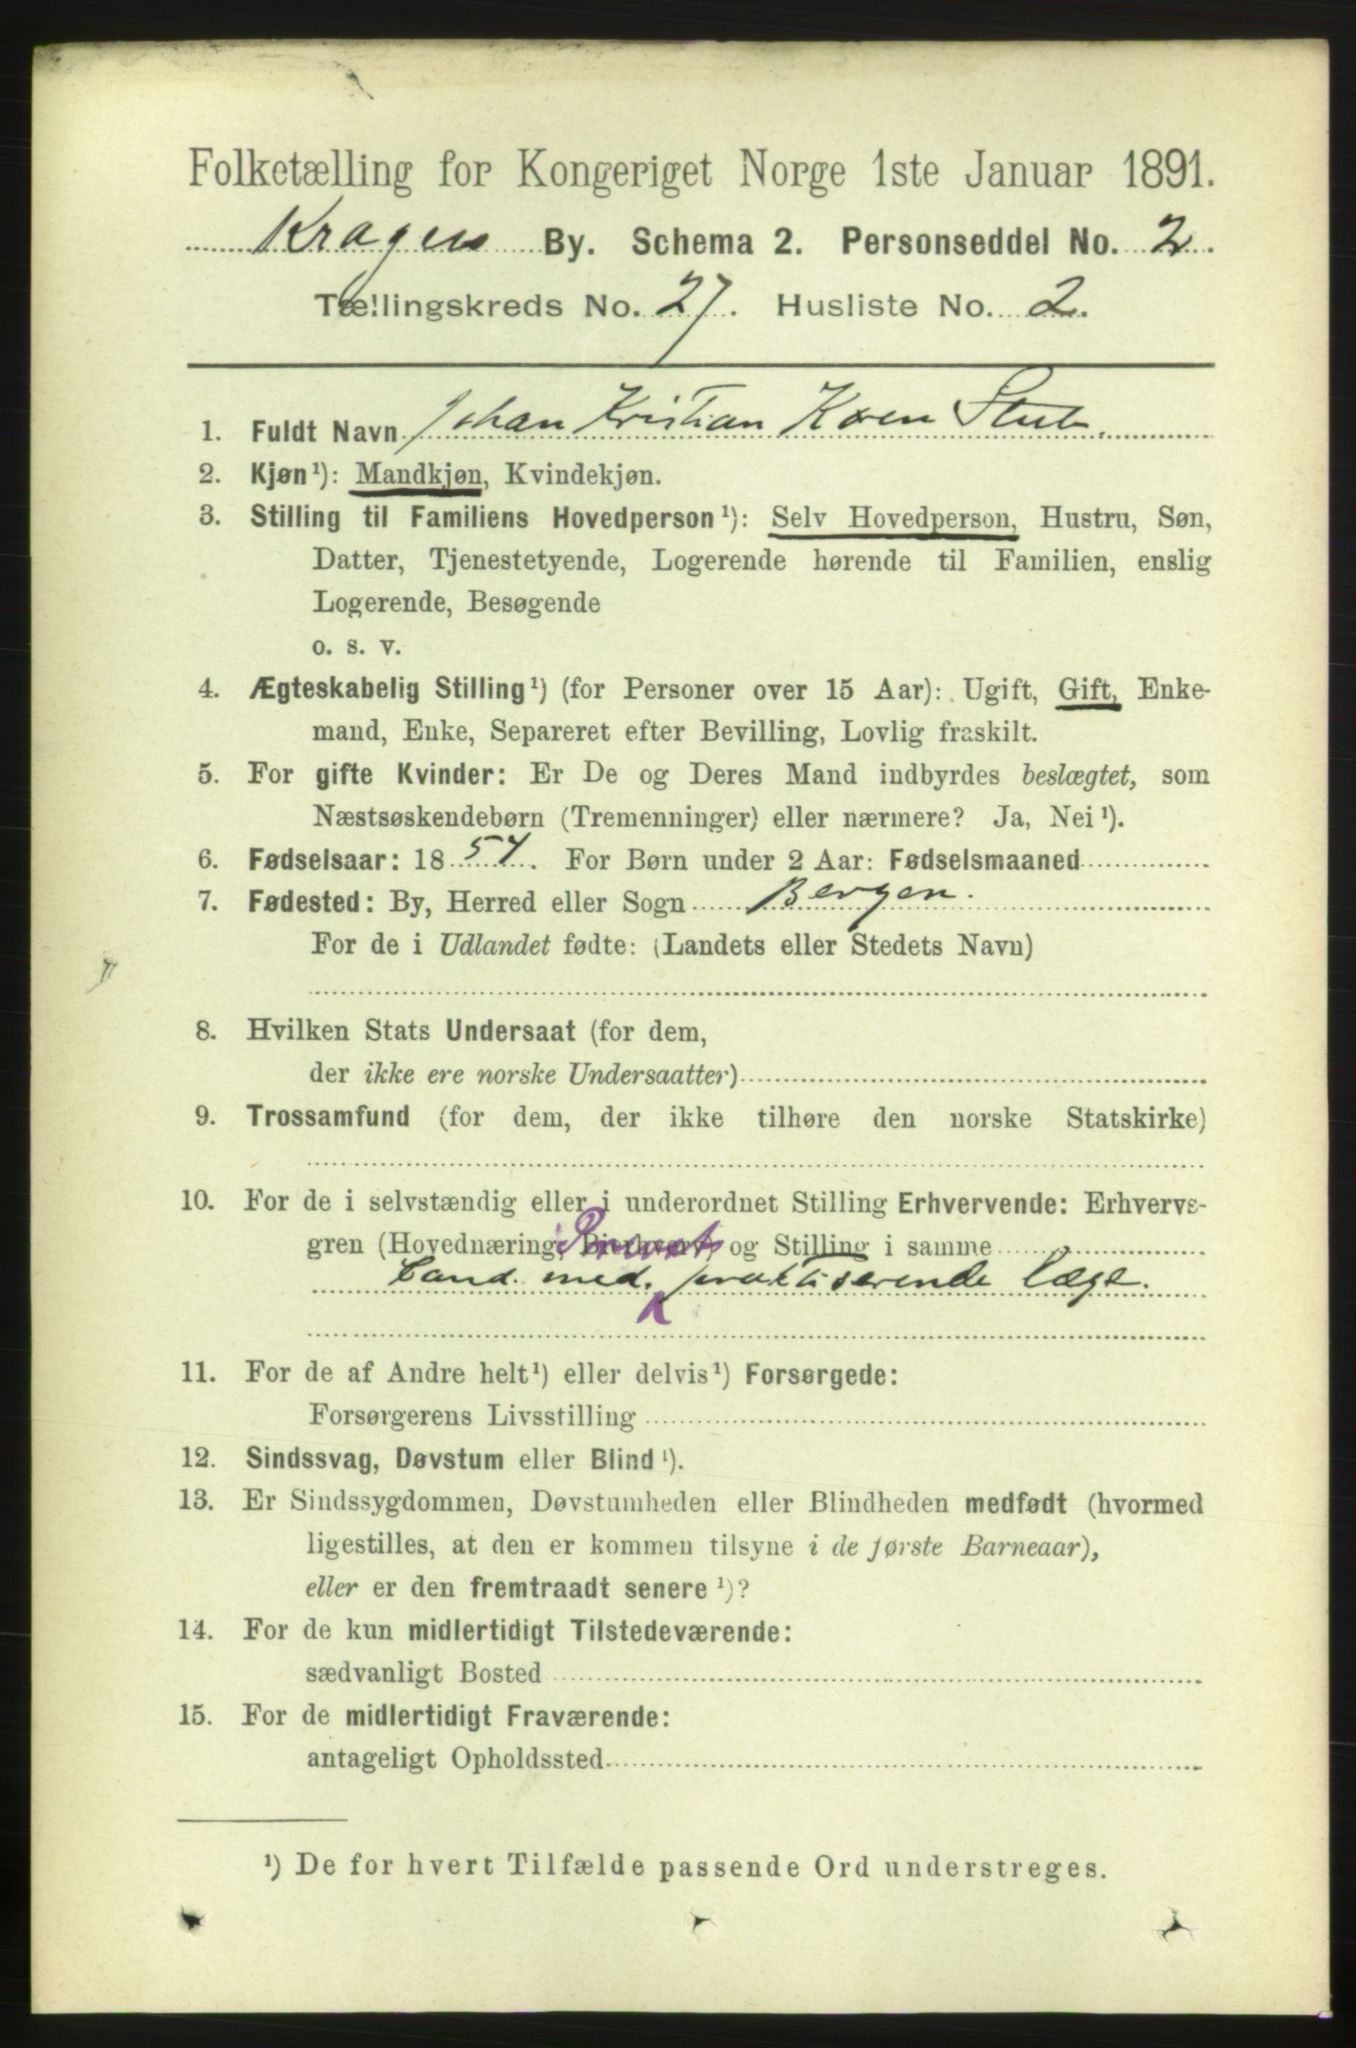 Folketælling for Kongeriget Norge 1ste Januar 1891.
Kragerø By. Schema 2. Personseddel No. 2.
Tællingskreds No. 27. Husliste No. 2.
1. Fuldt Navn Johan Kristian Koren Stub.
2. Kjøn¹): Mandkjøn, Kvindekjøn.
3. Stilling til Familiens Hovedperson¹): Selv Hovedperson, Hustru, Søn,
Datter, Tjenestetyende, Logerende hørende til Familien, enslig
Logerende, Besøgende
o. s. v.
4. Ægteskabelig Stilling¹) (for Personer over 15 Aar): Ugift, Gift, Enke-
mand, Enke, Separeret efter Bevilling, Lovlig fraskilt.
5. For gifte Kvinder: Er De og Deres Mand indbyrdes beslægtet, som
Næstsøskendebørn (Tremenninger) eller nærmere? Ja, Nei¹).
6. Fødselsaar: 1857. For Børn under 2 Aar: Fødselsmaaned
7. Fødested: By, Herred eller Sogn Bergen.
For de i Udlandet fødte: (Landets eller Stedets Navn)
8. Hvilken Stats Undersaat (for dem,
der ikke ere norske Undersaatter)
9. Trossamfund (for dem, der ikke tilhøre den norske Statskirke)
10. For de i selvstændig eller i underordnet Stilling Erhvervende: Erhvervs-
gren (Hovednæring, Bierhverv) og Stilling i samme
Privat
Cand. med. praktiserende læge.
K
11. For de af Andre helt¹) eller delvis¹) Forsørgede:
Forsørgerens Livsstilling
12. Sindssvag, Døvstum eller Blind¹).
13. Er Sindssygdommen, Døvstumheden eller Blindheden medfødt (hvormed
ligestilles, at den er kommen tilsyne i de første Barneaar),
eller er den fremtraadt senere¹)?
14. For de kun midlertidigt Tilstedeværende:
sædvanligt Bosted
15. For de midlertidigt Fraværende:
antageligt Opholdssted
¹) De for hvert Tilfælde passende Ord understreges.